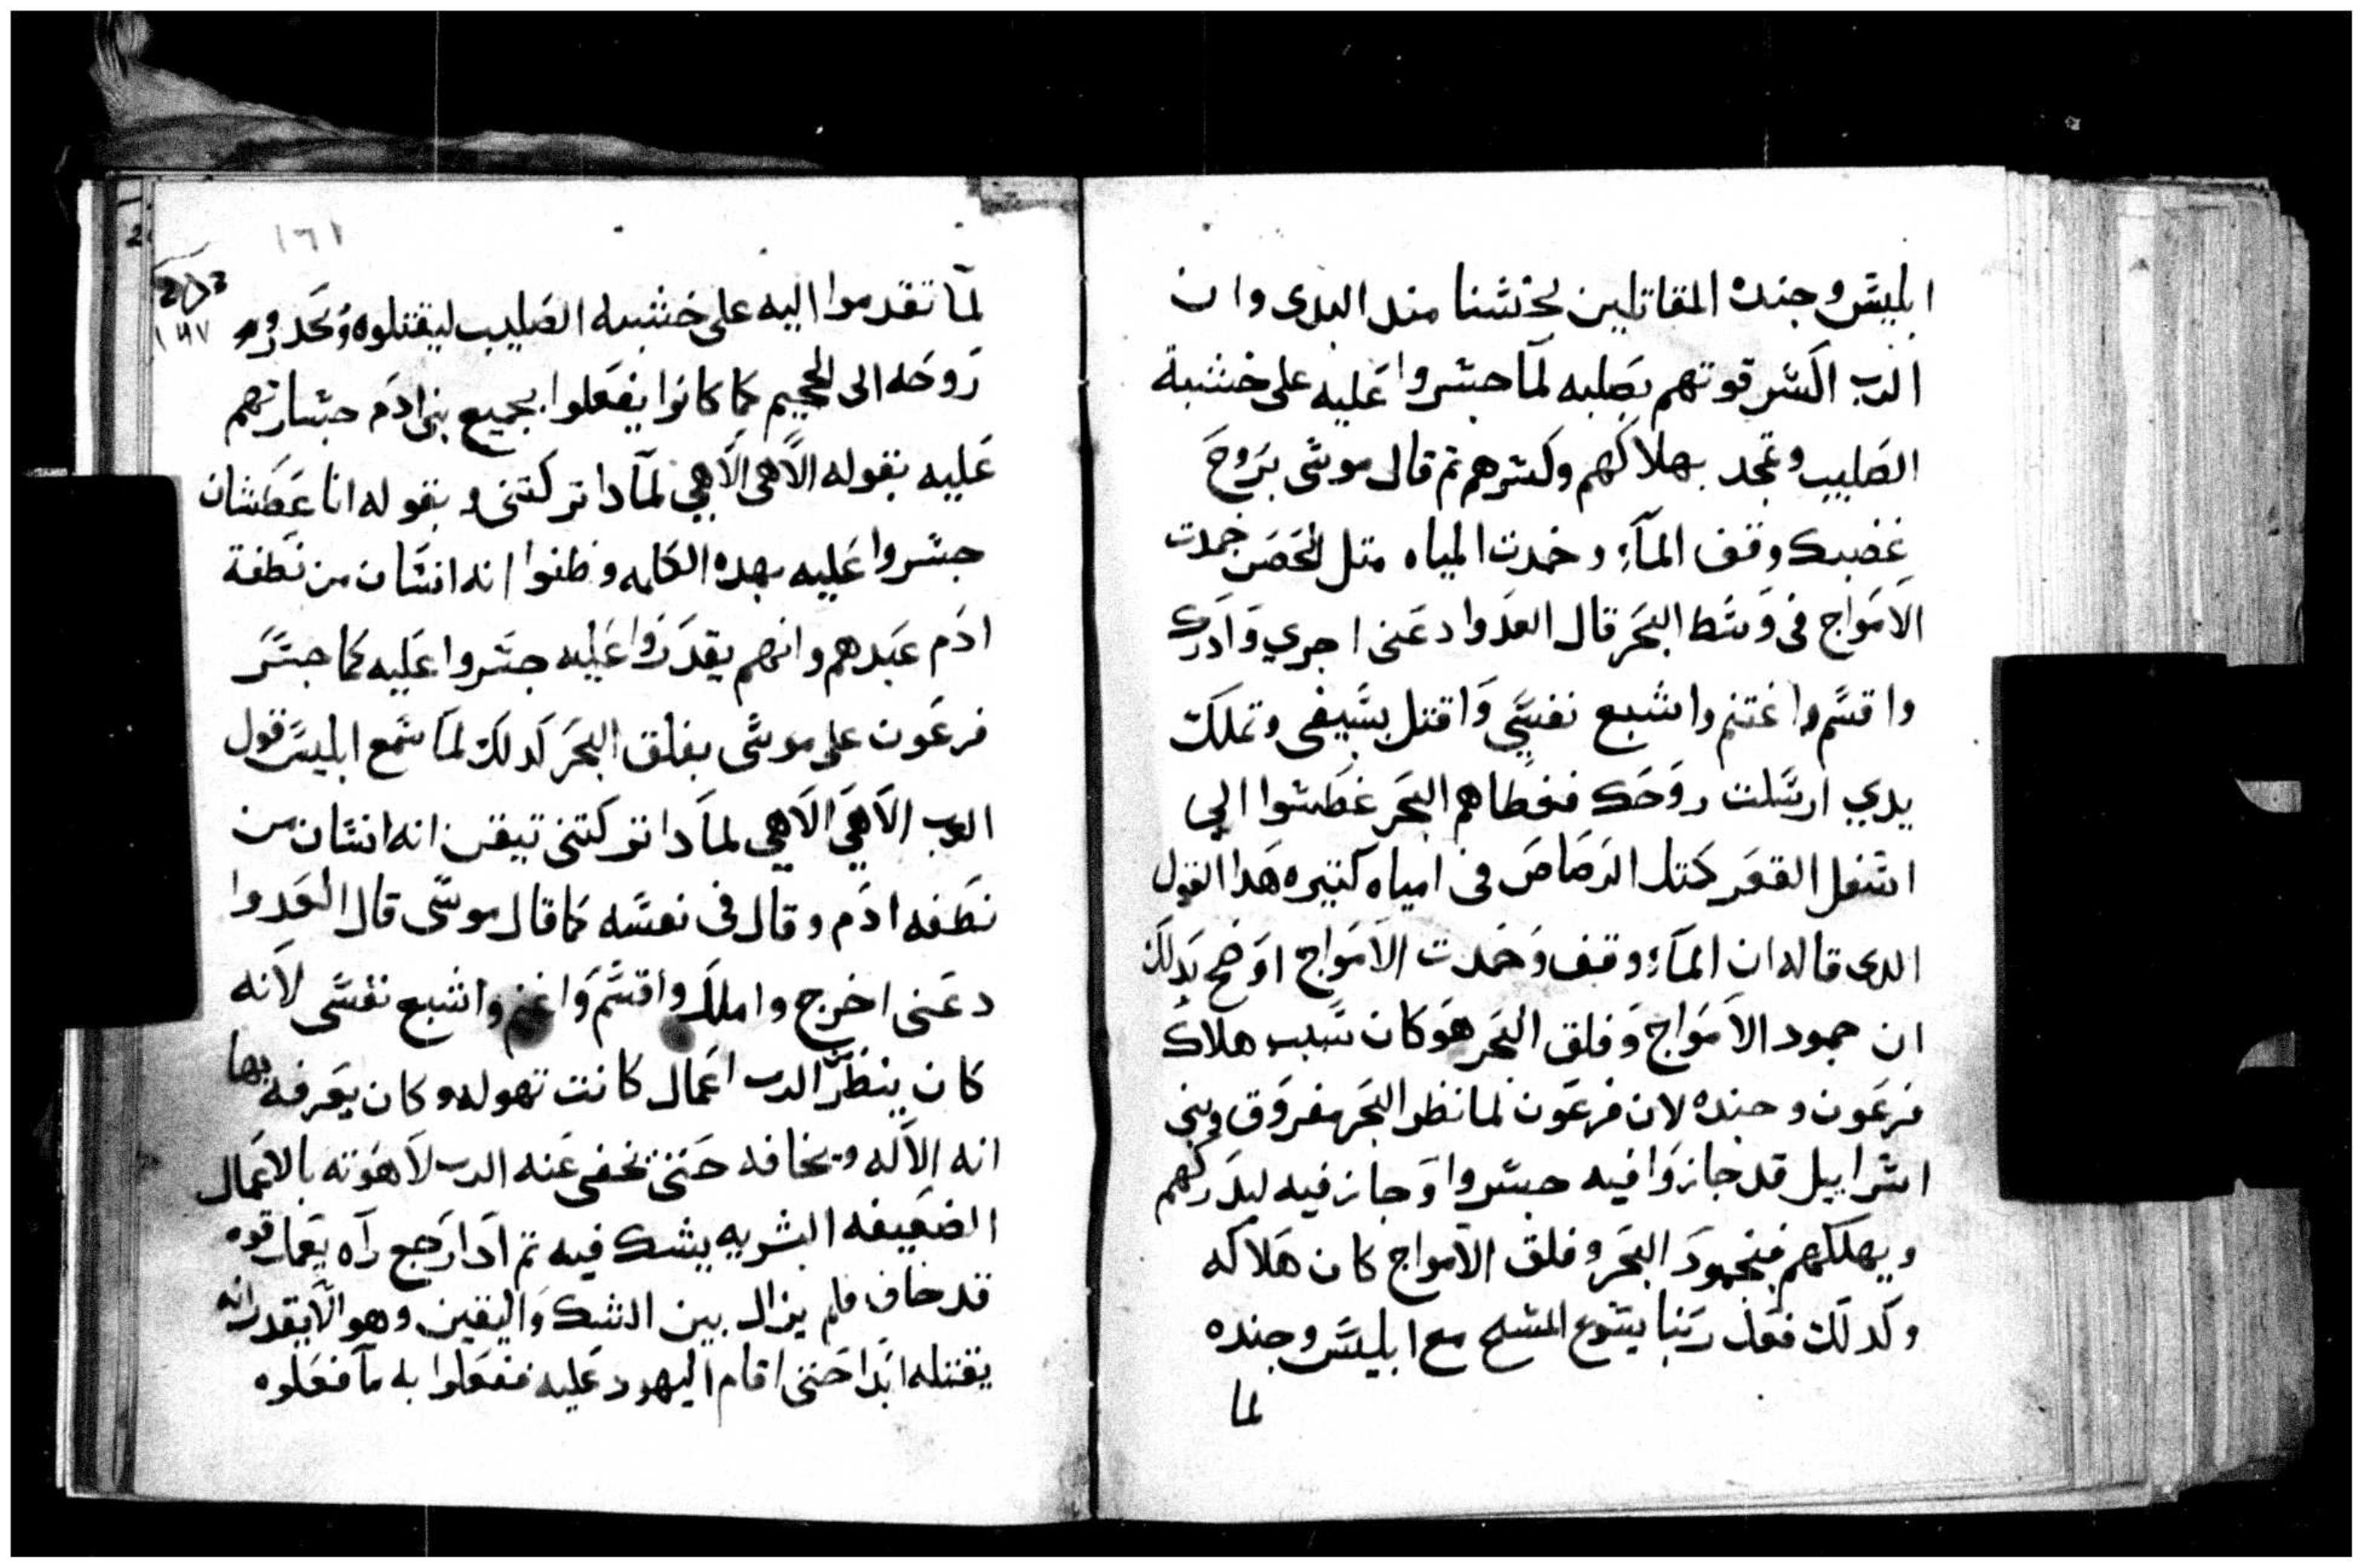 ابليس وجنده المقاتلين لجنسنا مند البدى وان
الرب اكسر قوتهم بصلبه لما جسروا عليه على خشبة
الصليب وتمجد بهلاكهم وكسرهم تم قال موسى بروح
غضبك وقف المآء وخمدت المياه متل الحصن جمدت
الامواج فى وسط البحر قال العدوا دعنى اجري وادرك
واقسم واغتنم واشبع نفسي واقتل بسيفى وتملك
يدي ارسلت روحك فغطاهم البحر غطسوا الي
اسفل القعر كتل الرصاص فى امياه كتيره هدا القول
الدى قاله ان المآء وقف وخمدت الامواج اوضح بدلك
ان جمود الامواج وفلق البحر هو كان سبب هلاك
فرعون وجنده لان فرعون لما نظر البحر مفروق وبنى
اسراييل قد جازوا فيه جسروا وجاز فيه ليدركهم
ويهلكهم فبجمود البحر وفلق الامواج كان هلاكه
وكدلك فعل ربنا يسوع المسيح مع ابليس وجنده
لما
١٦١
٢٥٣
١٤٧
لما تقدموا اليه على خشبه الصليب ليقتلوه ويحدروا
روحه الى الجحيم كما كانوا يفعلوا بجميع بنى ادم جسارتهم
عليه بقوله الاهى الاهي لمادا تركتنى وبقوله انا عطشان
جسروا عليه بهده الكلمه وظنوا انه انسان من نطفة
ادم عبدهم وانهم يقدروا عليه جسروا عليه كما جسر
فرعون على موسى بفلق البحر كدلك لما سمع ابليس قول
الرب الاهي الاهي لمادا تركتنى تيقن انه انسان من
نطفه ادم وقال فى نفسه كما قال موسى قال العدوا
دعنى اخرج واملك واقسم واغنم واشبع نفسى لانه
كان ينظر الرب اعمال كانت تهوله وكان يعرفه بها
انه الاله ويخافه حتى تخفى عنه الرب لاهوته بالاعمال
الضعيفه البشريه يشك فيه تم ادا رجع رآه يعمل قوه
قد خاف فلم يزال بين الشك واليقين وهو الا يقدر انه
يقتله ابدا حتى اقام اليهود عليه ففعلوا به ما فعلوه